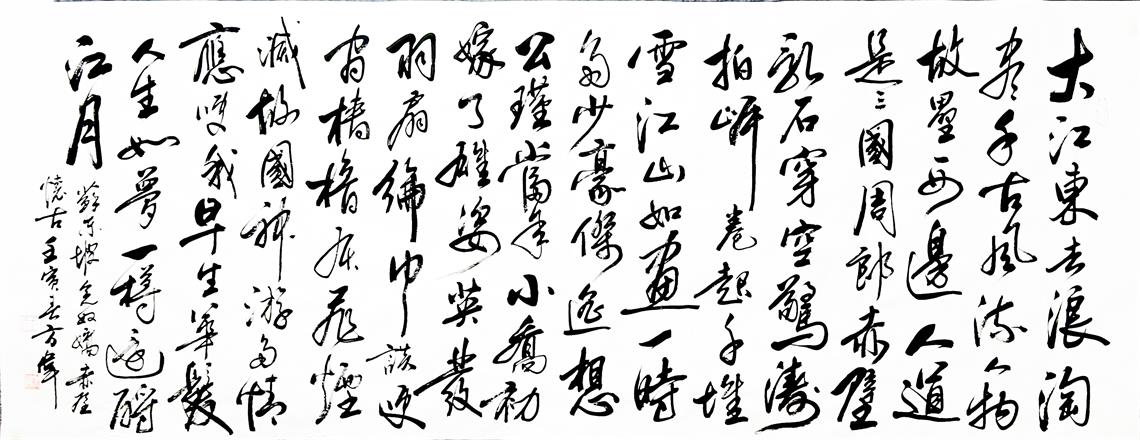 大江東去浪淘
盡千古風流人物
故壘西邊人道
是三國周郎赤壁
亂石穿空驚濤
拍岸卷起千堆
雪江山如畫一時
多少豪傑遙想
公瑾當年小喬初
嫁了雄姿英發
羽扇綸巾談笑
間檣櫓灰飛煙
滅故國神游多情
應笑我早生華髮
人生如夢一樽還酹
江月
蘇東坡念奴嬌赤壁
懷古壬寅春方偉